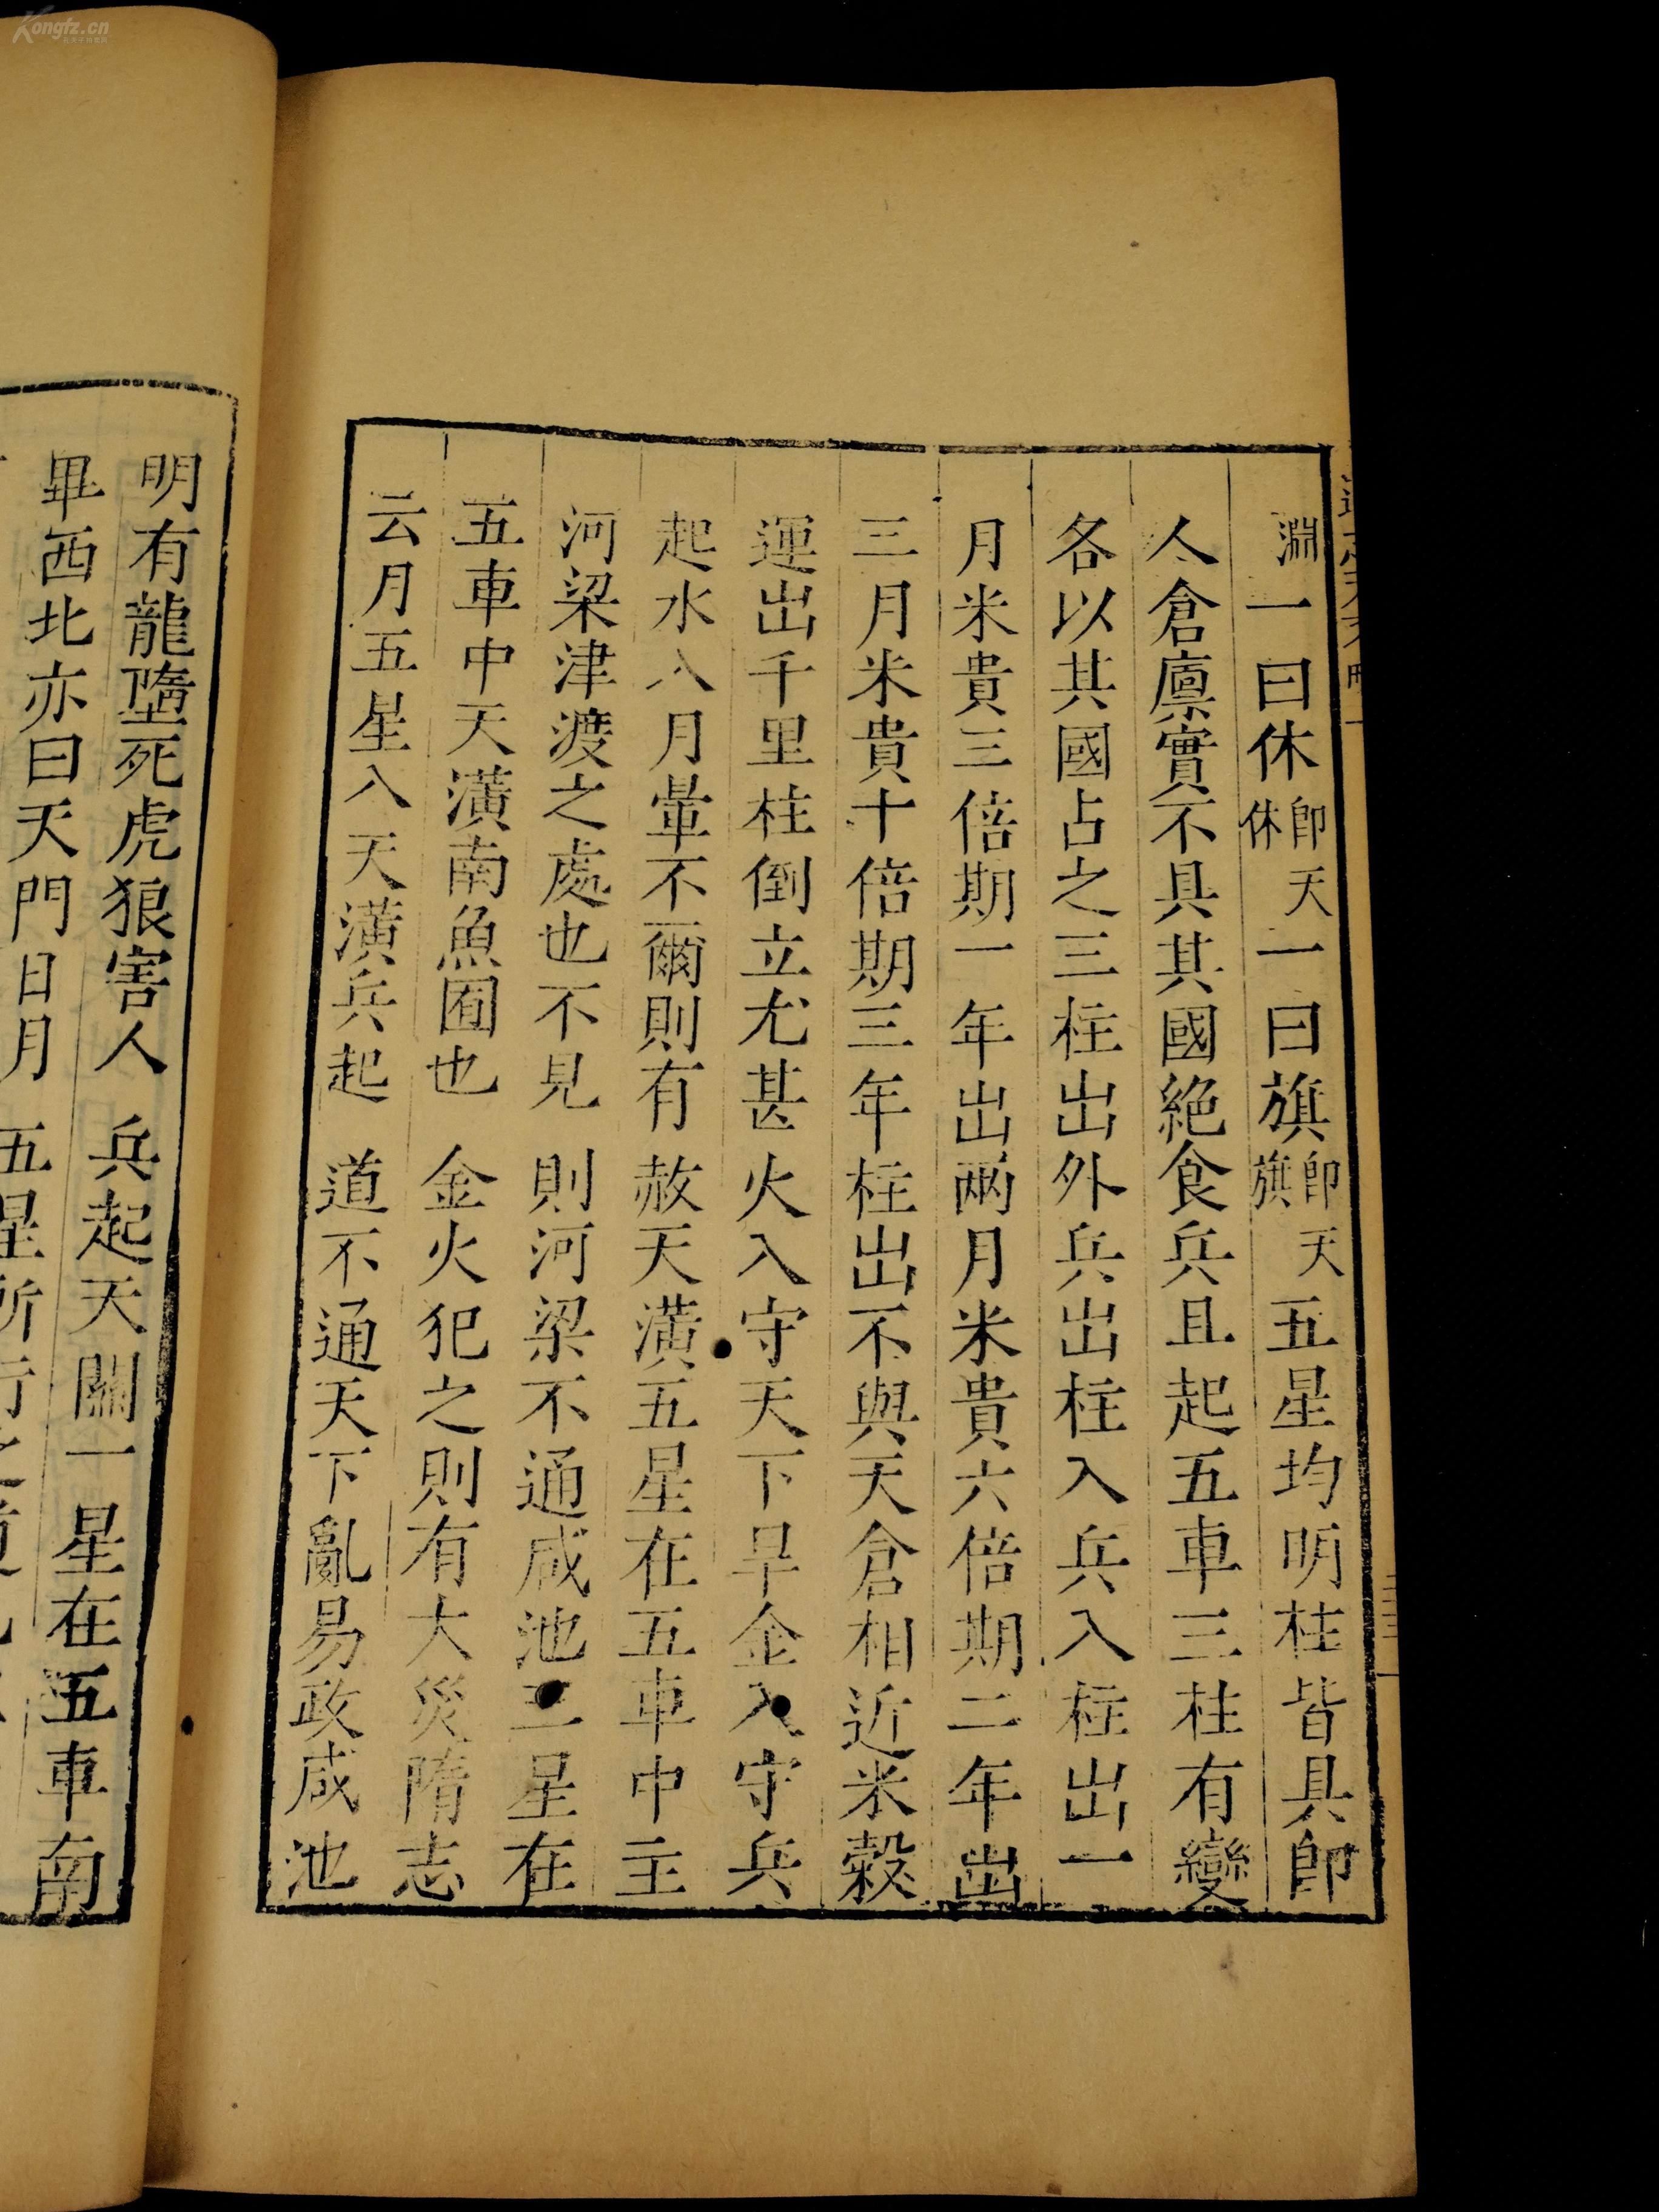 淵一曰休即天休一曰旗即天旗五星均明柱皆具即
人倉廩實不具其國絶食兵且起五車三柱有變
各以其國占之三柱出外兵出柱入兵入柱出一
月米貴三倍期一年出兩月米貴六倍期二年出
三月米貴十倍期三年柱出不與天倉相近米穀
運出千里柱倒立尤甚火入守天下旱金入守兵
起水入月暈不爾則有赦天潢五星在五車中主
河梁津渡之處也不見則河梁不通咸池三星在
五車中天潢南魚囿也金火犯之則有大災隋志
云月五星入天潢兵起道不通天下亂易政咸池
明有龍墮死虎狼害人兵起天關一星在五車南
畢西北亦曰天門日月五星所行之道
Kongfz.cn